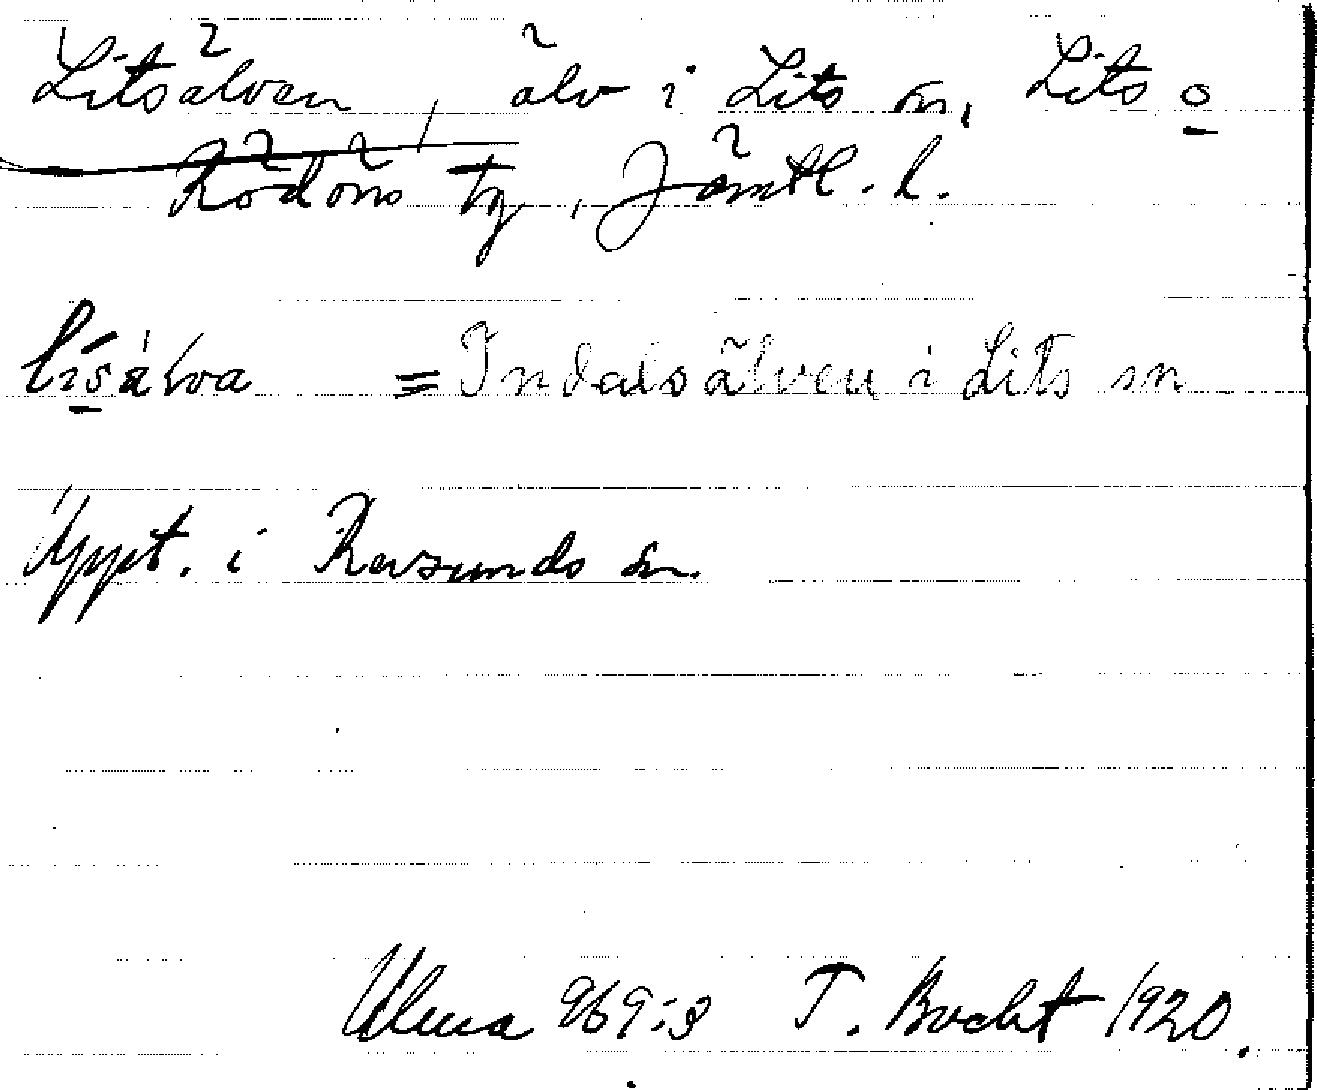 Litsälven, älv i Lits sn, Lits o
Rödöns tg, Jämtl. l.
= Indalsälven i Lits sn
Uppt. i Revsunds sn.
Ulma 969:3 T. Bucht 1920.